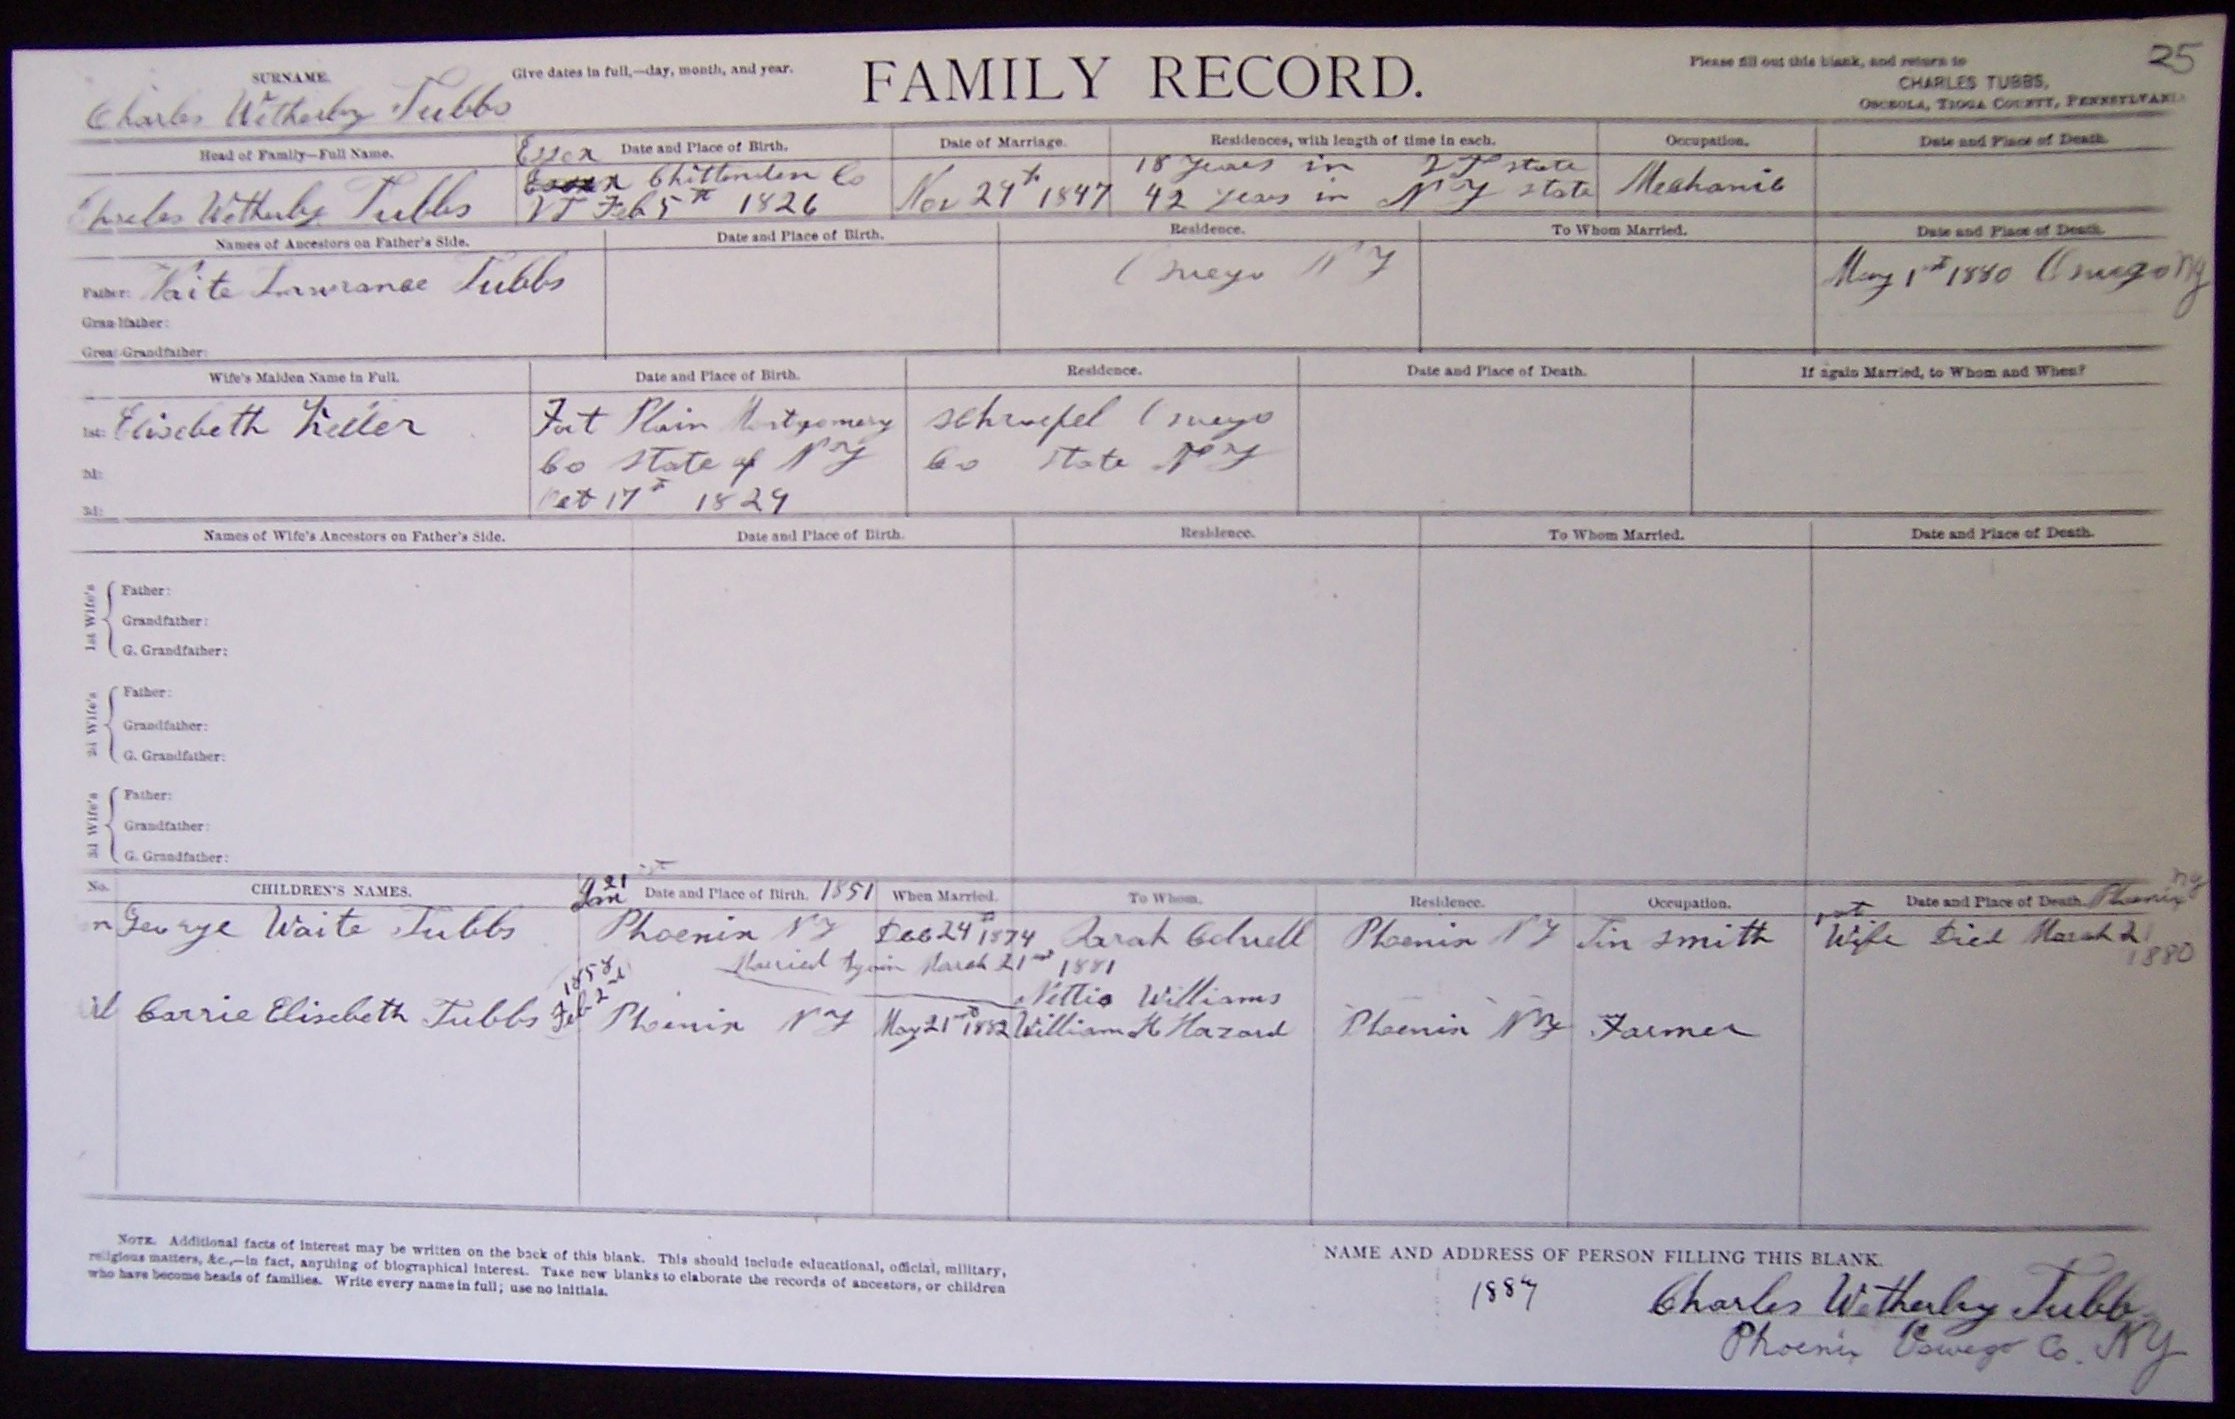 25
SURNAME.
Give dates in full,—day, month, and year.
FAMILY RECORD.
Please fill out this blank, and return to
CHARLES TUBBS,
OSCEOLA, TIOGA COUNTY, PENNSYLVANIA
Charles Wetherby Tubbs
Head of Family—Full Name.
Date and Place of Birth.
Date of Marriage.
Residences, with length of time in each.
Occupation.
Date and Place of Death.
Essex
Charles Wetherby Tubbs
Chittenden Co
VT Feb 5th 1826
Nov 29th 1847
18 years in VT state
42 years in NY state
Mechanic
Names of Ancestors on Father's Side.
Date and Place of Birth.
Residence.
To Whom Married.
Date and Place of Death.
Father: Waite Lawrance Tubbs
Oswego NY
May 1st 1880 Oswego NY
Grandfather:
Great-Grandfather:
Wife's Maiden Name in Full.
Date and Place of Birth.
Residence.
Date and Place of Death.
If again Married, to Whom and When?
1st: Elisebeth Keller
Fort Plain Montgomery
Co State of NY
Oct 17th 1829
Schroepel Oswego
Co State NY
2d:
3d:
Names of Wife's Ancestors on Father's Side.
Date and Place of Birth.
Residence.
To Whom Married.
Date and Place of Death.
1st Wife's
Father:
Grandfather:
G. Grandfather:
2d Wife's
Father:
Grandfather:
G. Grandfather:
3d Wife's
Father:
Grandfather:
G. Grandfather:
No.
CHILDREN'S NAMES.
Date and Place of Birth.
When Married.
To Whom.
Residence.
Occupation.
Date and Place of Death.
George Waite Tubbs
Jan 21 1851
Phoenix NY
Dec 24th 1874
Sarah
Phoenix NY
Tin Smith
1st Wife Died March 2
1880
Phoenix NY
Married Again March 21 1881
Nettie Williams
Carrie Elisebeth Tubbs
Feb 2nd
Phoenix NY
May 21st 1882
William H Hazard
Phoenix NY
Farmer
NOTE. Additional facts of interest may be written on the back of this blank. This should include educational, official, military,
religious matters, &c.,—in fact, anything of biographical interest. Take new blanks to elaborate the records of ancestors, or children
who have become heads of families. Write every name in full; use no initials.
NAME AND ADDRESS OF PERSON FILLING THIS BLANK.
1887
Charles Wetherby Tubbs
Phoenix Oswego Co. NY